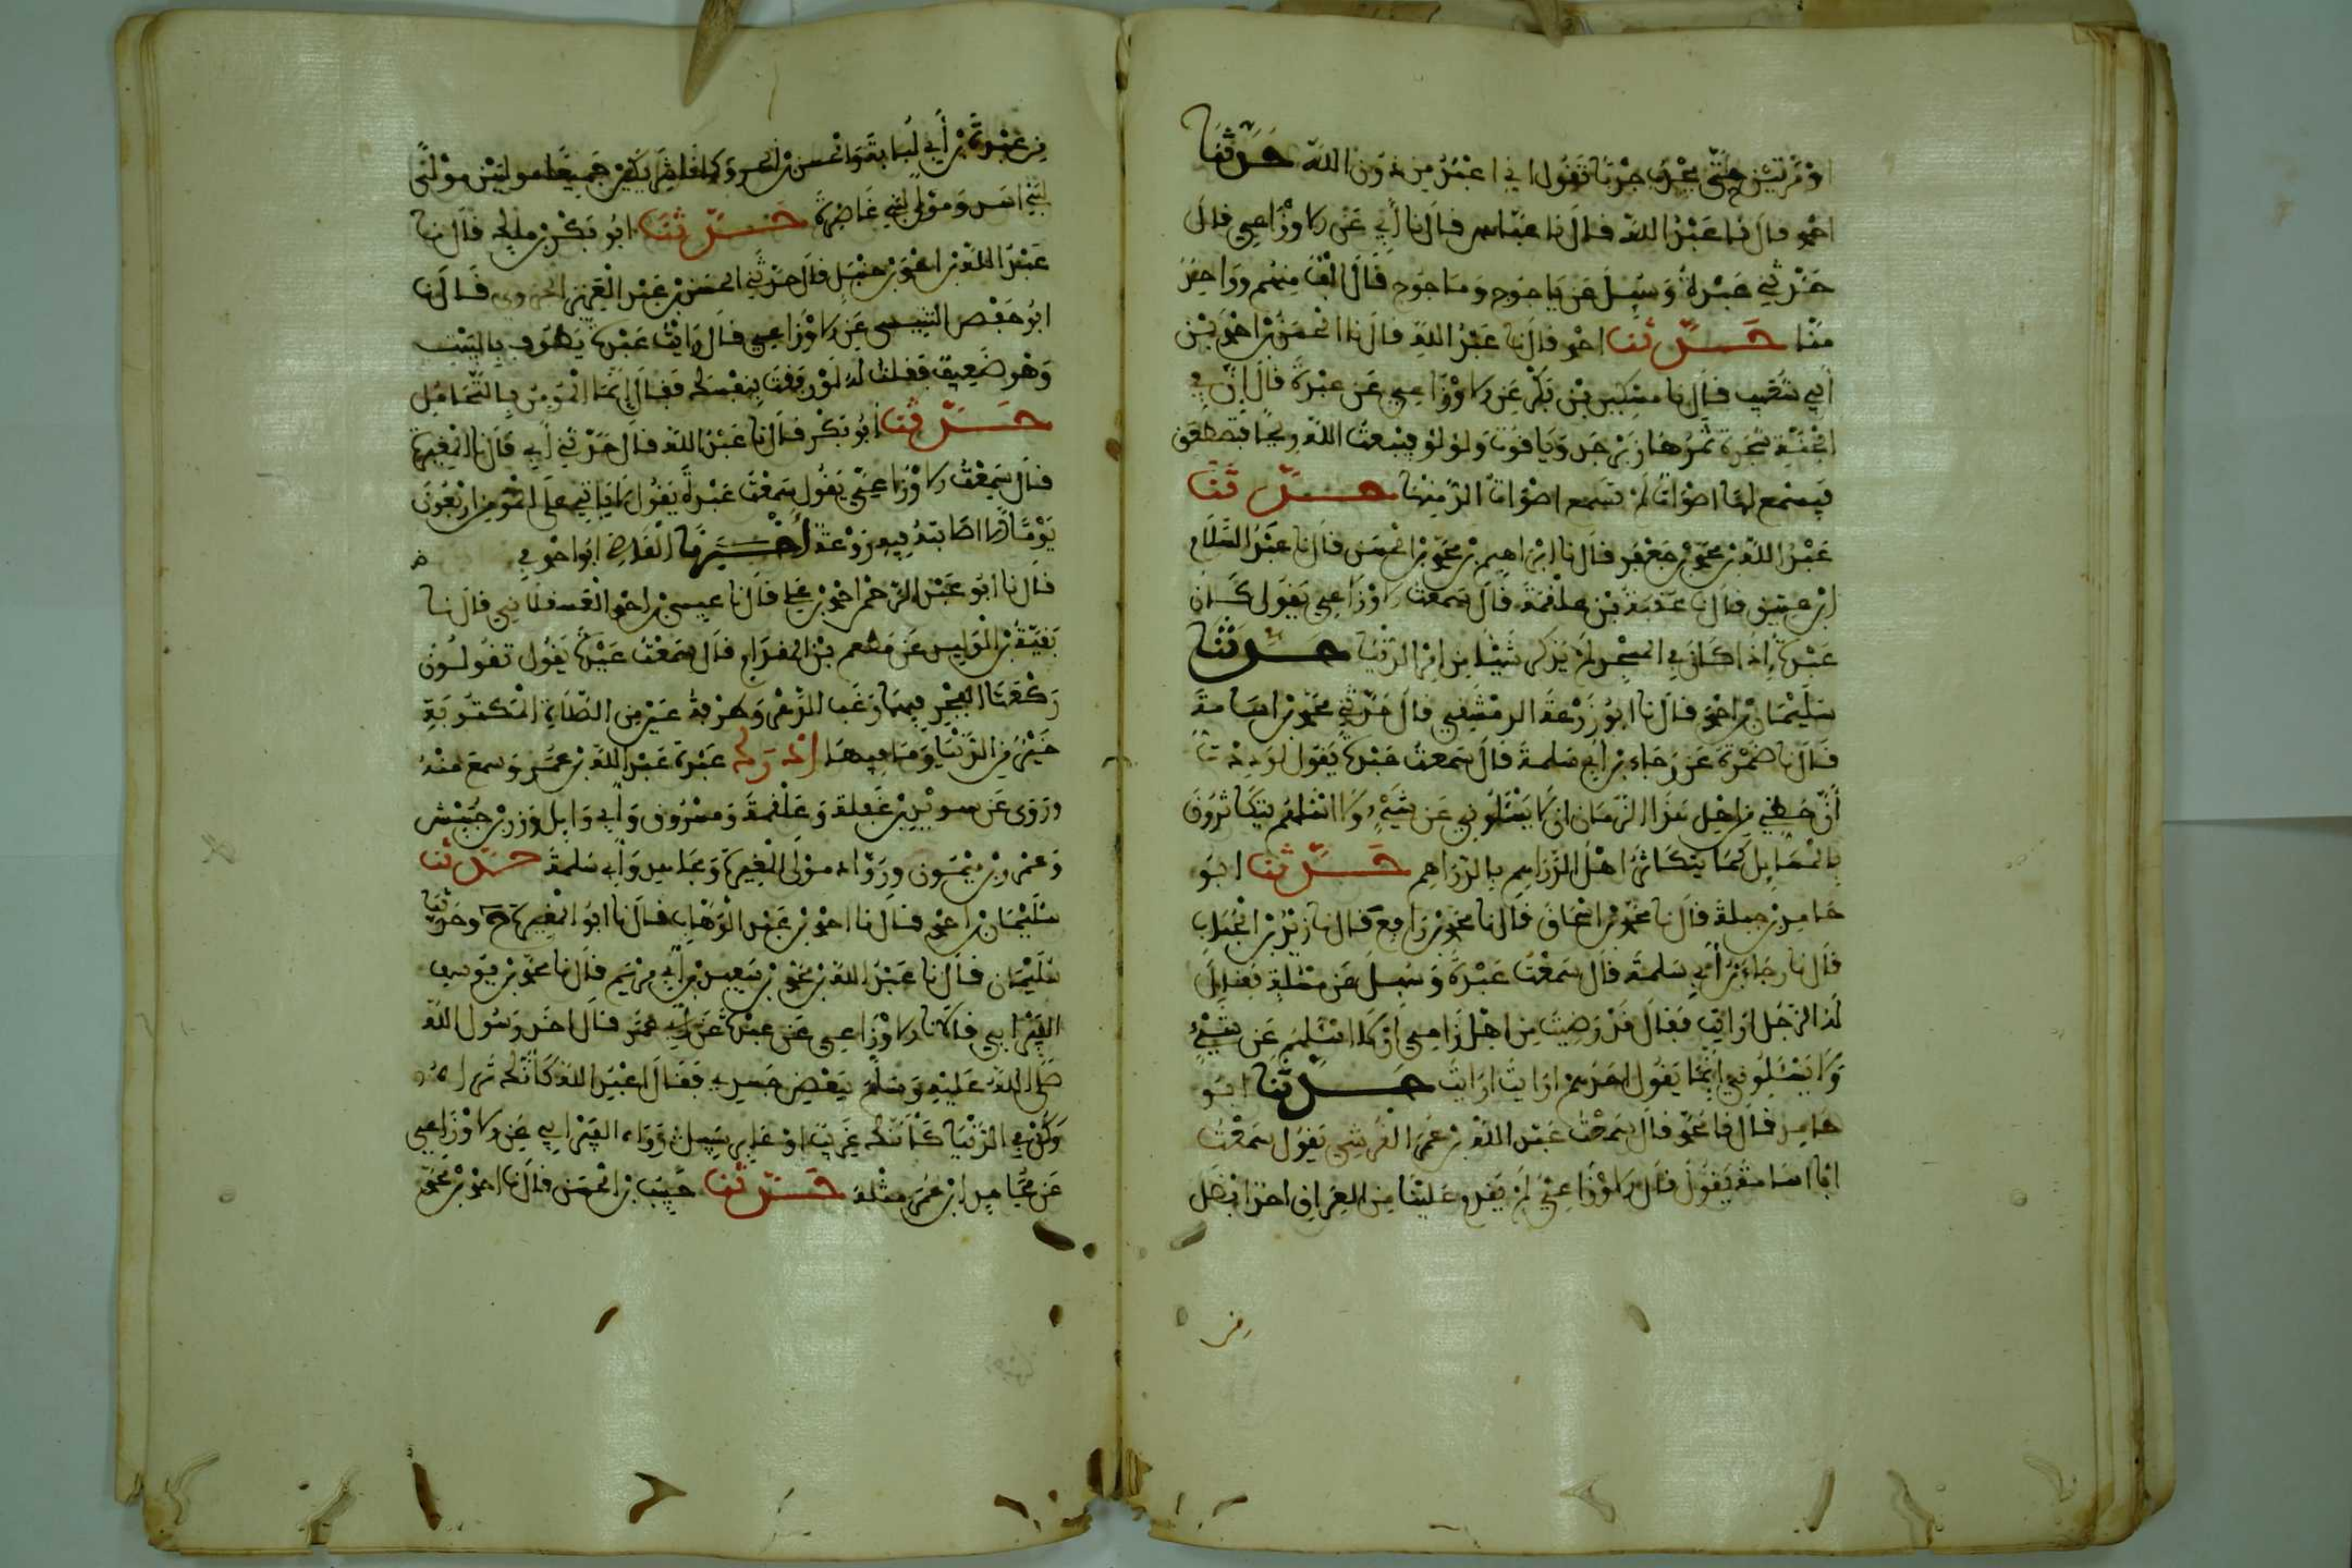 او مرتين حتى يجرب جربا فيقول اني اعبد من دون الله حدثنا
احمد قال نا عبد الله قال نا عباس قال نا أبي عن الاوزاعي قال
حدثني عبدة وسيل عن ياجوج وماجوج قال ألف منهم وواحد
منا حدثنا احمد قال نا عبد الله قال نا الحسن بن احمد بن
أبي شعيب قال نا مسكين بن بكر عن الاوزاعي عن عبدة قال إن في
الجنة شجرة ثمرها زبرجد وياقوت ولولو فيبعث الله ريحا فتصطفق
فيسمع لها اصوات لم تسمع اصوات الذ منها حدثنا
عبد الله بن محمد بن جعفر قال نا ابراهيم بن محمد بن الحسن قال نا عبد السلام
ابن عتيق قال نا عقبة بن علقمة قال سمعت الاوزاعي يقول كان
عبدة إذا كان في المسجد لم يذكر شيئا من امر الدنيا حدثنا
سليمان بن احمد قال نا ابو زرعة الدمشقي قال حدثني محمد بن اسامة
قال نا ضمرة عن رجاء بن أبي سلمة قال سمعت عبدة يقول لوددت
أن حظي من اهل هذا الزمان اني لا يسئلوني عن شيء ولا اسئلهم يتكاثرون
بالمسايل كما يتكاثر اهل الدراهم بالدراهم حدثنا ابو
حامد بن جبلة قال نا محمد بن اسحاق قال نا محمد بن رافع قال نا زيد بن الحباب
قال نا رجاء بن أبي سلمة قال سمعت عبدة وسيل عن مسئلة فقيل
له الرجل ارايت فقال قد رضيت من اهل زماني ان لا اسئلهم عن شيء
ولا يسئلوني انما يقول احدهم ارايت ارايت حدثنا ابو
حامد قال نا محمد قال سمعت عبد الله بن عمر القرشي يقول سمعت
ابا اسامة يقول قال الاوزاعي لم يقدم علينا من العراق احد افضل
من
من عبدة بن أبي لبابة والحسن بن الحر وكانا شريكين جميعا موليين مولى
لبني اسد ومولى لبني غاضرة حدثنا ابو بكر بن ملك قال نا
عبد الله بن احمد بن حنبل قال حدثني الحسن بن عبد العزيز الجروي قال نا
ابو حفص التنيسي عن الاوزاعي قال رايت عبدة يطوف بالبيت
وهو ضعيف فقلت له لو رفقت بنفسك فقال إنما المومن بالتحامل
حدثنا أبو بكر قال نا عبد الله قال حدثني أبي قال نا المغيرة
قال سمعت الاوزاعي يقول سمعت عبدة يقول لا ياتي على المومن اربعون
يوما الا اصابته فيه روعة أخبرنا القاضي ابو احمد في
قال نا ابو عبد الرحمن احمد بن علي قال نا عيسى بن احمد العسقلاني قال نا
بقية بن الوليد عن مطعم بن المقدام قال سمعت عبدة يقول تقولون
ركعتا الفجر فيهما رغب الدهر وطرفة عين من الصلاة المكتوبة
خير من الدنيا وما فيها ادرك عبدة عبد الله بن عمر وسمع منه
وروى عن سويد بن غفلة وعلقمة ومسروق وأبي وايل وزر بن حبيش
وعمرو بن ميمون ورواد مولى المغيرة ومجاهد وأبي سلمة حدثنا
سليمان بن احمد قال نا احمد بن عبد الوهاب قال نا ابو المغيرة ح وحدثنا
سليمان قال نا عبد الله بن محمد بن سعيد بن أبي مريم قال نا محمد بن يوسف
الفريابي قال نا الاوزاعي عن عبدة عن ابن عمر قال اخذ رسول الله
صلى الله عليه وسلم ببعض جسدي فقال اعبد الله كأنك تراه
وكن في الدنيا كأنك غريب او عابر سبيل رواه الفريابي عن الاوزاعي
عن مجاهد ابن عمر مثله حدثنا حبيب بن الحسن قال نا احمد بن محمد